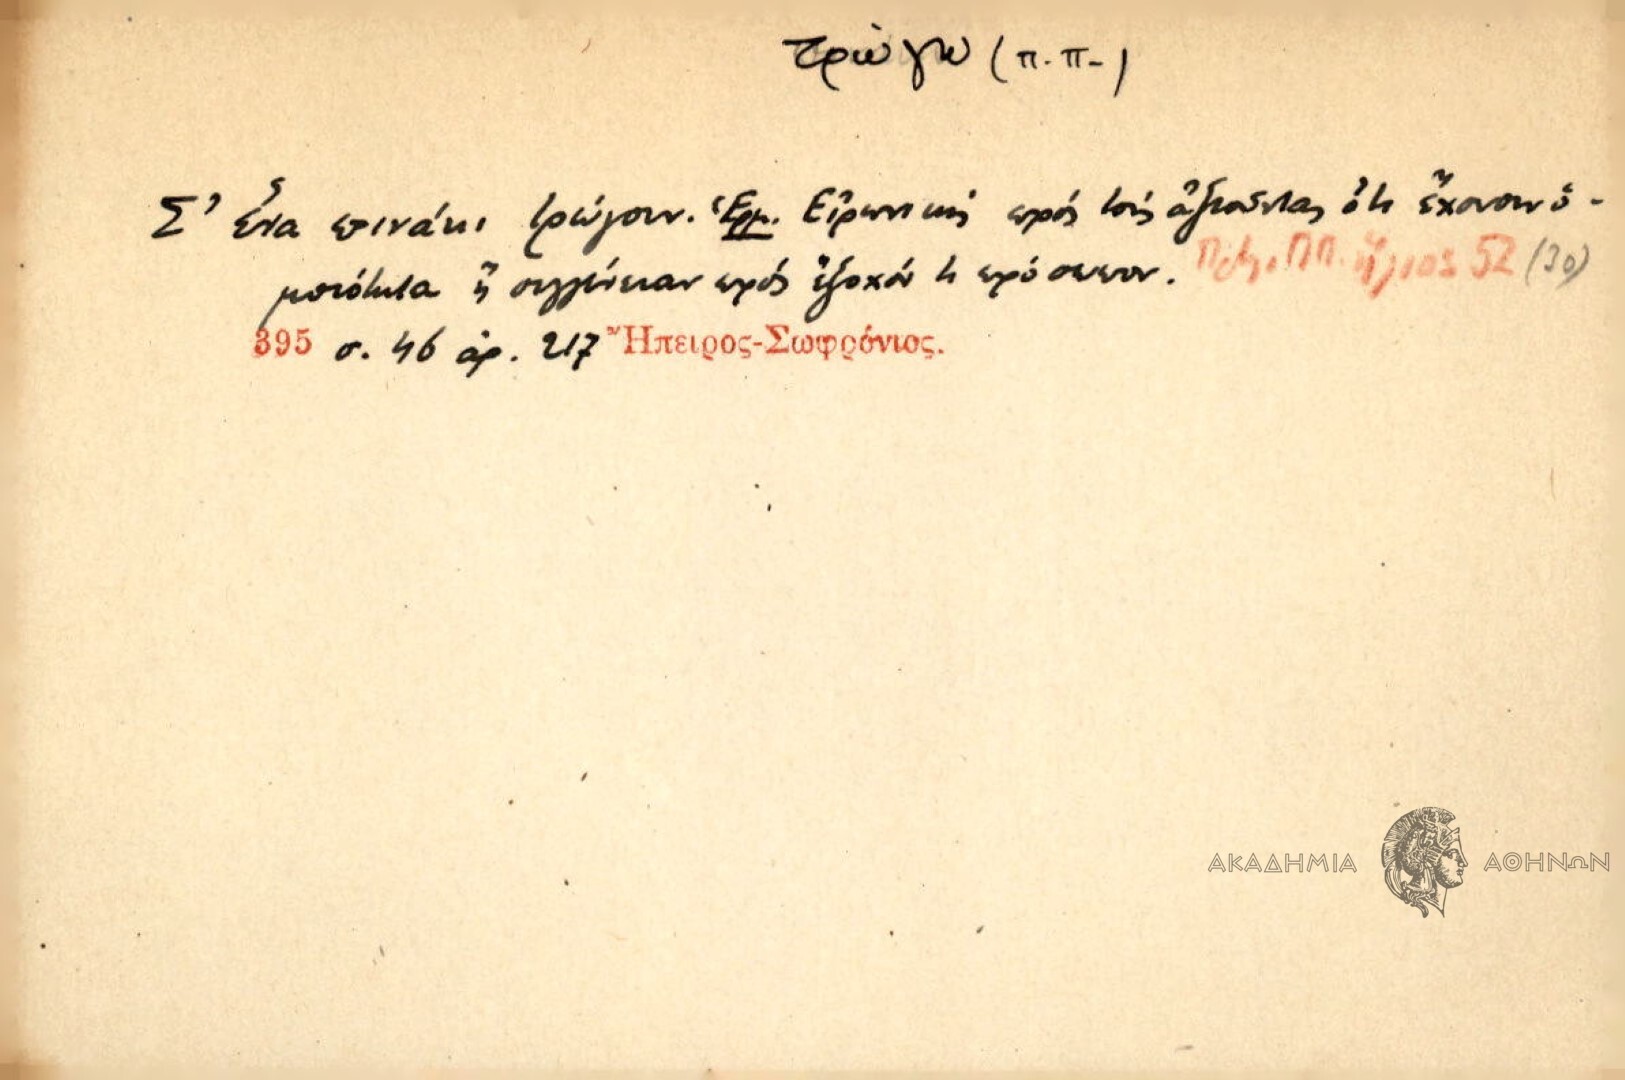 τρώγω (π.π.)
Σ' ἕνα πινάκι τρώγουν. Ἑρμ. Εἰρωνικῶς πρὸς τοὺς ἀξιοῦντας ὅτι ἔχουσιν ὁ-
μοιότητα ἢ συγγένειαν πρὸς ἔξοχόν τι πρόσωπον. ΠΠ. ἥλιος 52 (30)
395 σ. 46 ἀρ. 217 Ἤπειρος-Σωφρόνιος.
ΑΚΑΔΗΜΙΑ ΑΘΗΝΩΝ